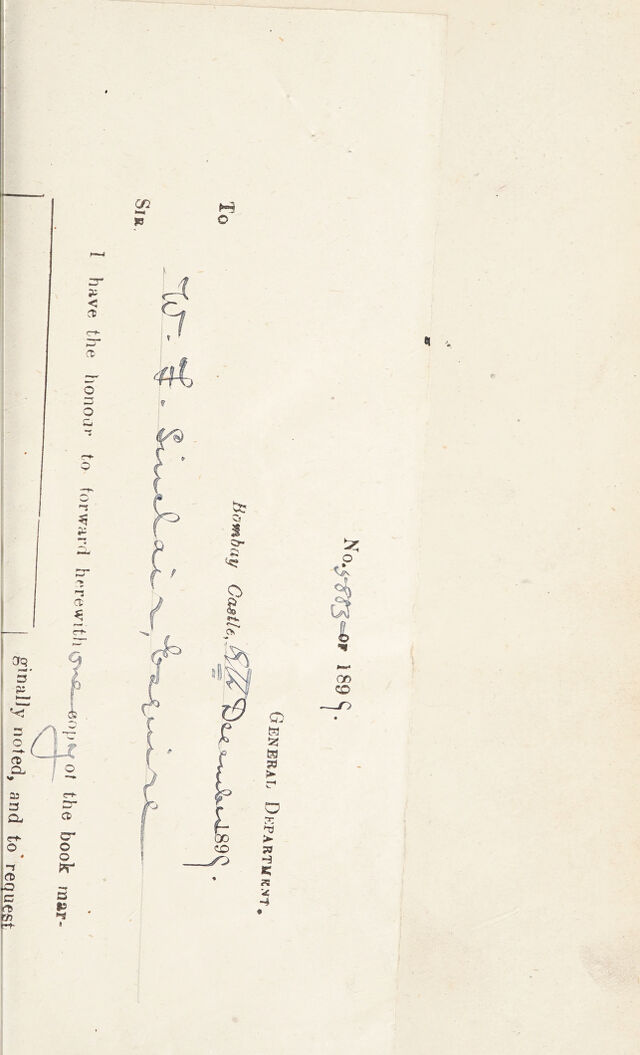 No. 5883 OF 1899.
GENERAL DEPARTMENT.
Bombay Castle, 8th December 1899.
To
W. F. Sinclair, Esquire
SIR,
I have the honour to forward herewith one copy of the book mar-
ginally noted, and to request